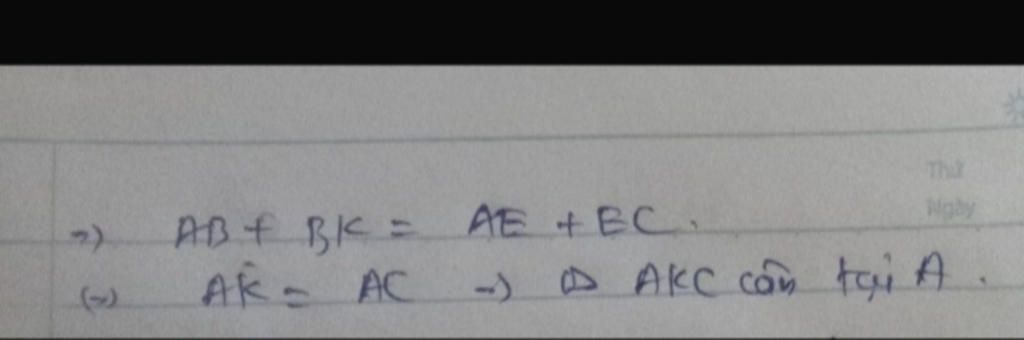 Thứ
Ngày
=) AB + BK = AE + EC.
(=) AK = AC -) △ AKC cân tại A.